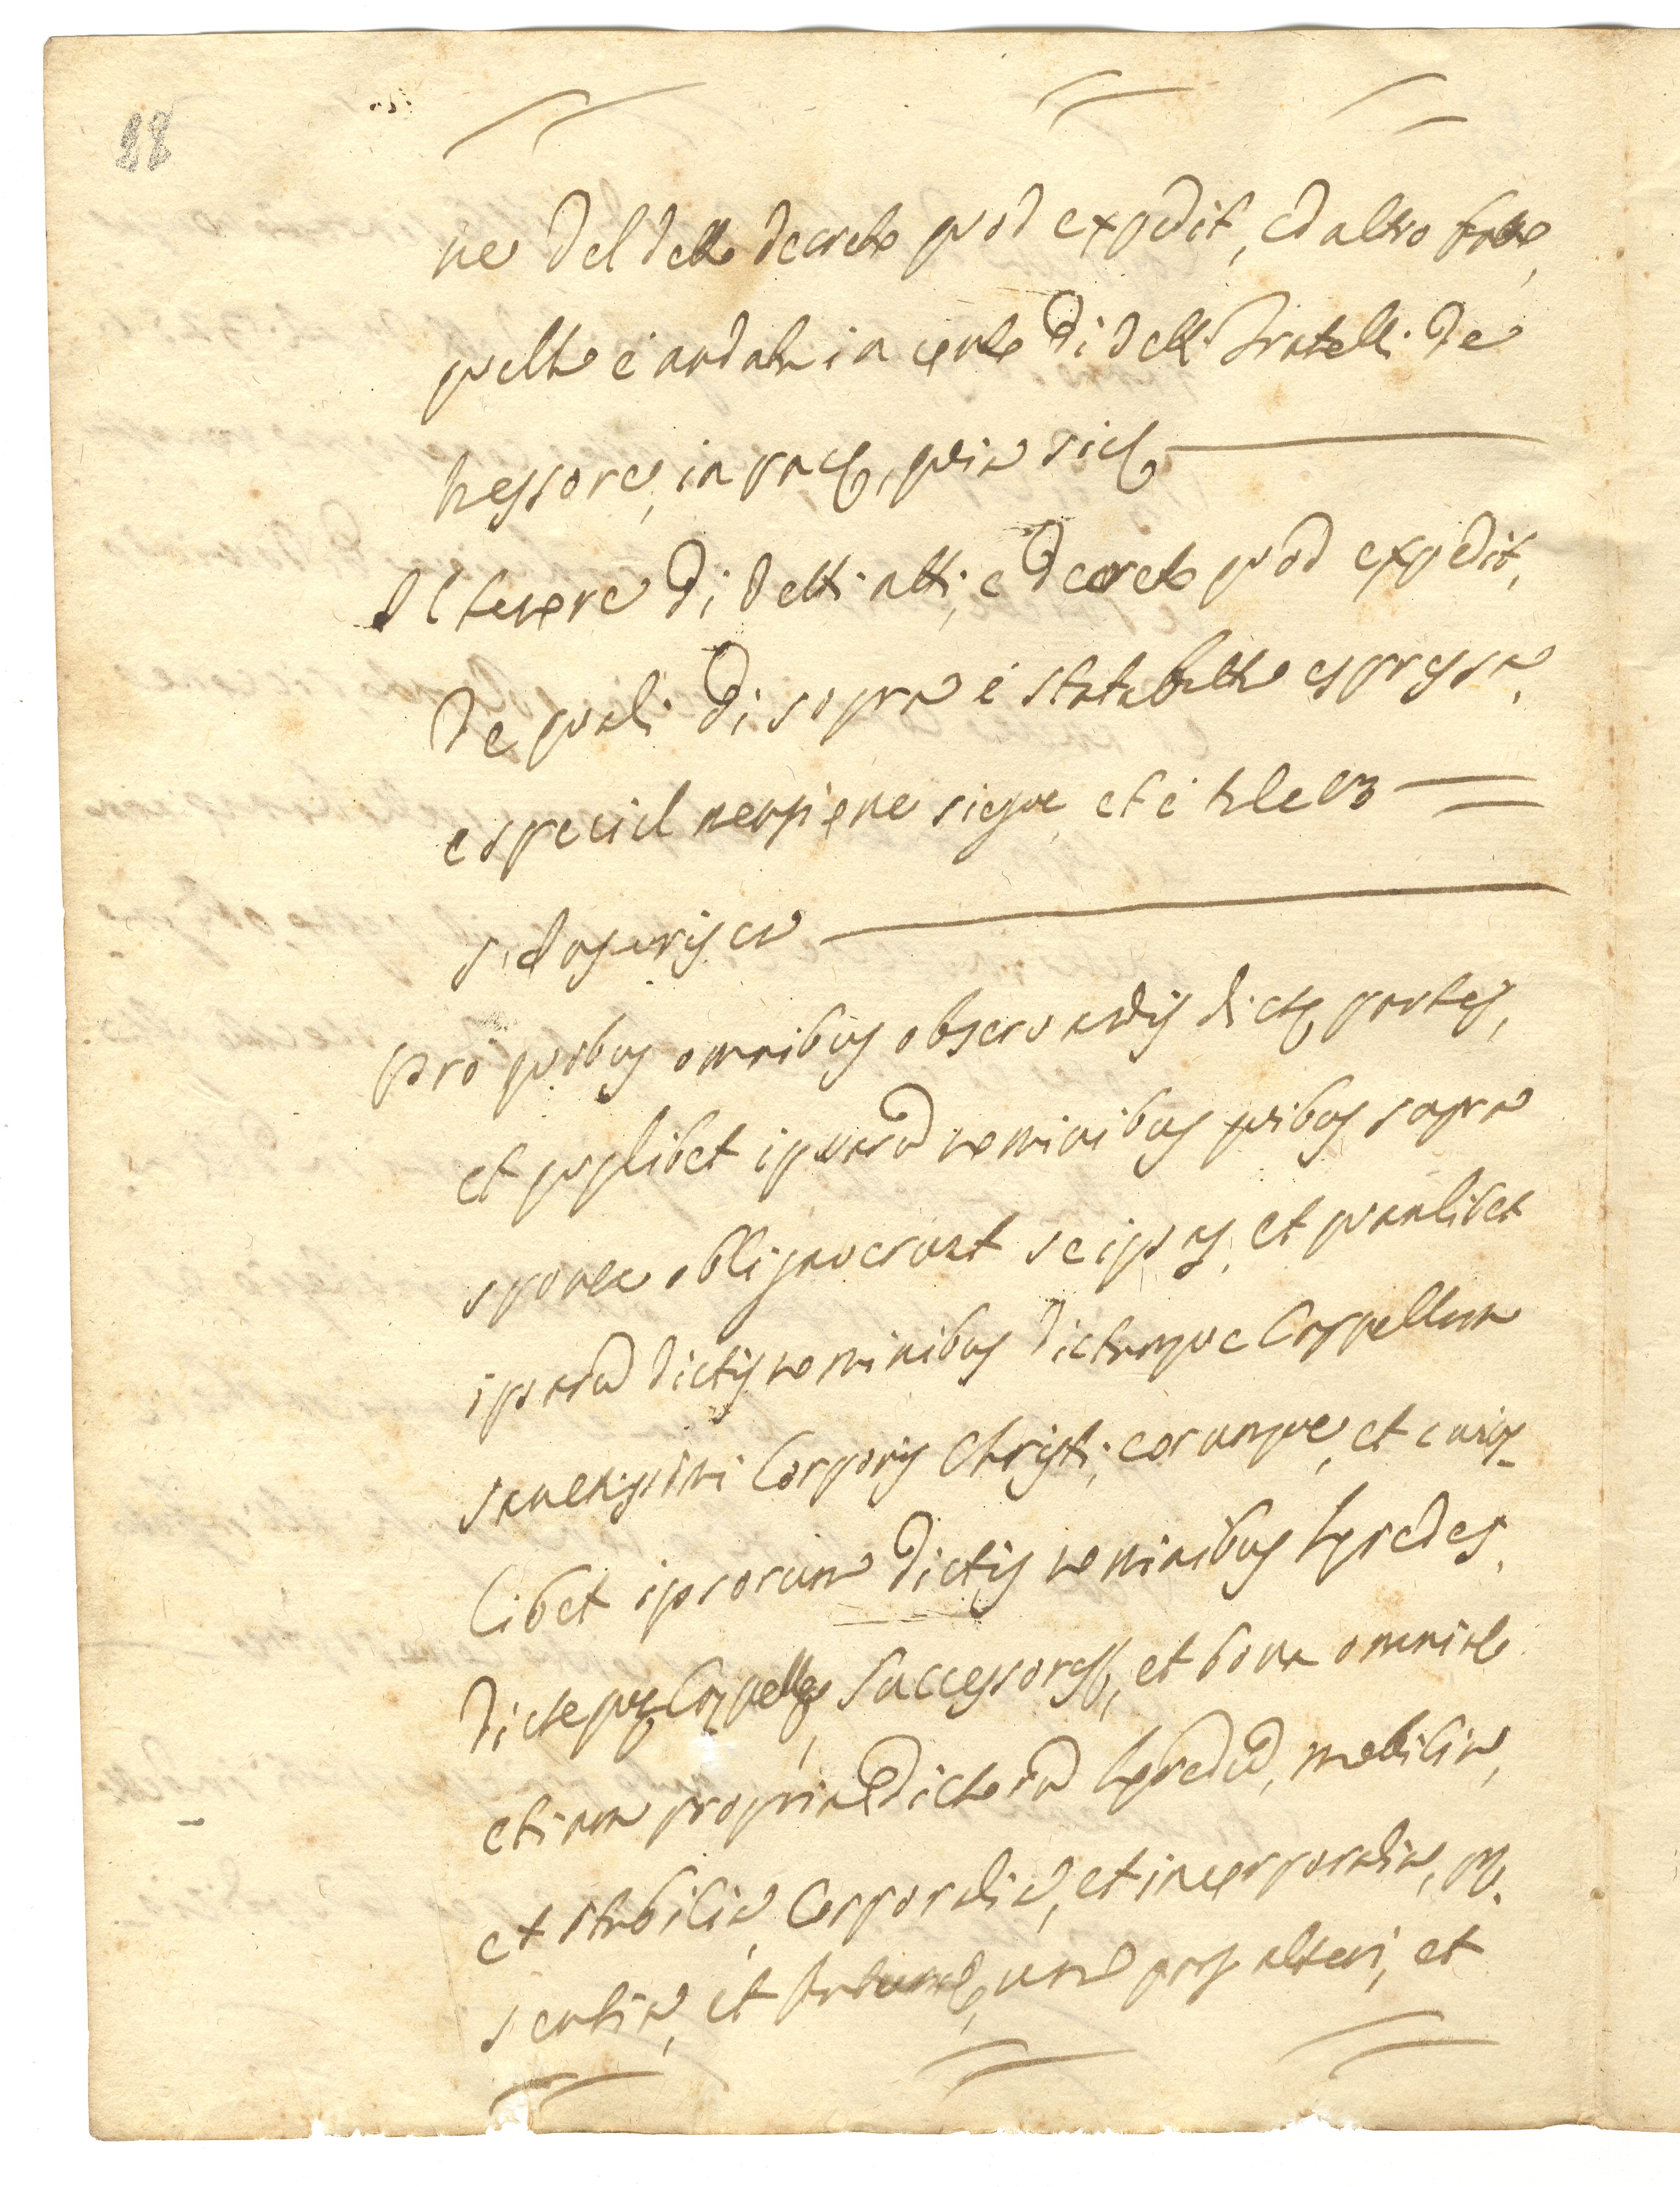 28
ne del detto decreto quod expedit, ed altro fatto,
quello è andato in conto di detti Fratelli de
Tessore, in pace, quia sic
Il tenore di detti atti, e decreto quod expedit,
de quali di sopra è stata fatta espressa,
e special menzione siegue, et è tale
Si deserisca
Pro quibus omnibus observandis dictę partes,
et quęlibet ipsarum nominibus quibus supra
sponte obligaverunt se ipsas, et quamlibet
ipsarum dictis nominibus dictamque Cappellam
Sanctissimi Corporis Christi, eorumque, et cuius-
libet ipsorum dictis nominibus hęredes,
dictęque Cappellę Successores, et bona omnia
etiam propria dictorum hęredum, mobilia,
et stabilia, Corporalia, et incorporalia, prę-
sentia, et futura, una pars alteri, et